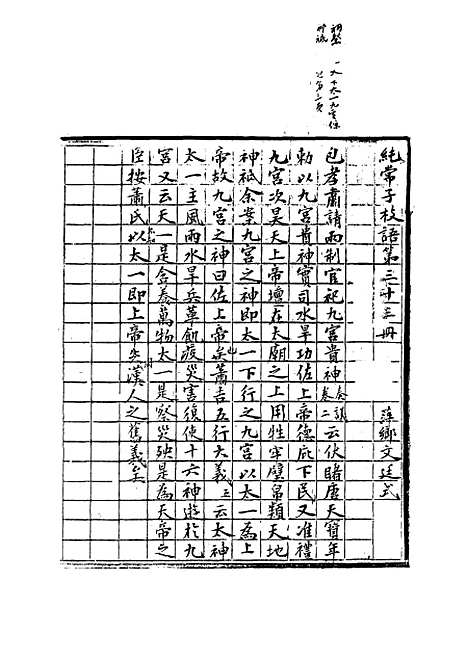 純常子枝語第三十三冊
萍鄉文廷式
包孝肅請兩制官祀九宮貴神奏議卷二云伏睹唐天寶年
勅以九宮貴神實司水旱功佐上帝德庇下民又准禮
九宮次昊天上帝壇在太廟之上用牲牢璧帛類天地
神祇余案九宮之神即太一下行之九宮以太一為上
帝故九宮之神曰佐上帝矣蕭吉五行大義云太神
太一主風雨水旱兵革飢疫災害復使十六神遊於九
宮又云天一是含養萬物太一是察災殃是為天帝之
臣按蕭氏以太一即上帝失漢人之舊義矣